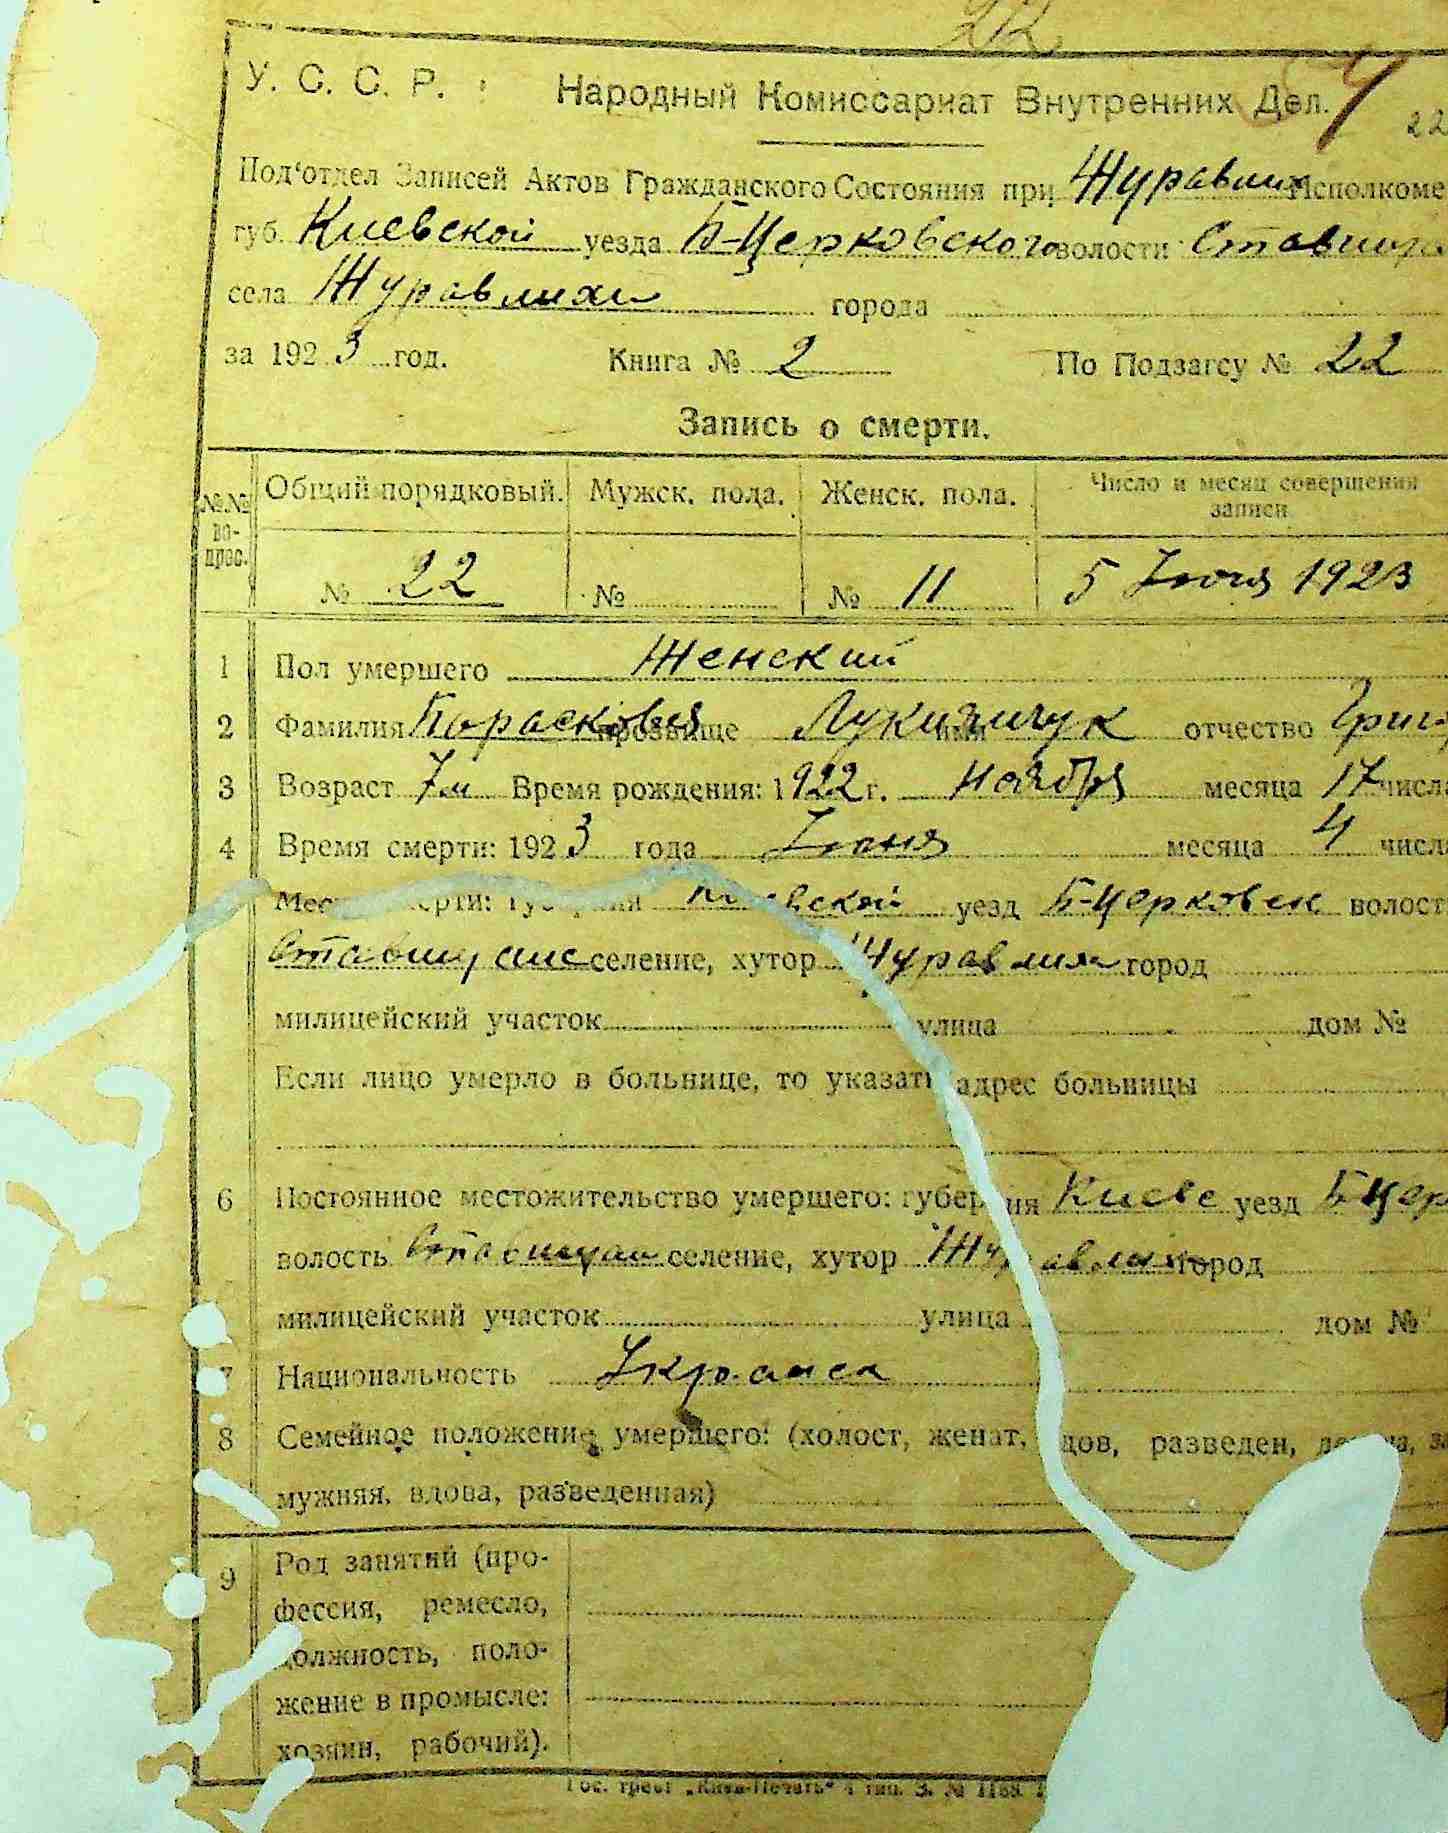 22
У. С. С. Р. Народный Комиссариат Внутренних Дел.
22
Под'отдел Записей Актов Гражданского Состояния при Журавлих Исполкоме
губ. Киевской уезда Б-Церковского волости
села Журавлихи города
за 1923 год. Книга № 2 По Подзагсу № 22
Запись о смерти.
№№ во- прос. Общий порядковый. Мужск. пола. Женск. пола. Число и месяц совершения записи
№ 22 № № 11 5 Июня 1923
1 Пол умершего Женский
2 Фамилия Парасковия прозвище Лукиянчук имя отчество Григ
3 Возраст 7 м Время рождения: 1922 г. Ноября месяца 17 числа
4 Время смерти: 1923 года Июня месяца 4 числа
уезд Б-Церковск волость
селение, хутор Журавлиха город
милицейский участок улица дом №
Если лицо умерло в больнице, то указать адрес больницы
6 Постоянное местожительство умершего: губерния Киевс уезд Б Цер
волость селение, хутор город
милицейский участок улица дом №
7 Национальность Украинск
8 Семейное положение умершего: (холост, женат, вдов, разведен,
мужняя, вдова, разведенная)
9 Род занятий (про-
фессия, ремесло,
должность, поло-
жение в промысле:
хозяин, рабочий).
Гос. трест „Киев-Печать“ 4 тип. З. № 1168